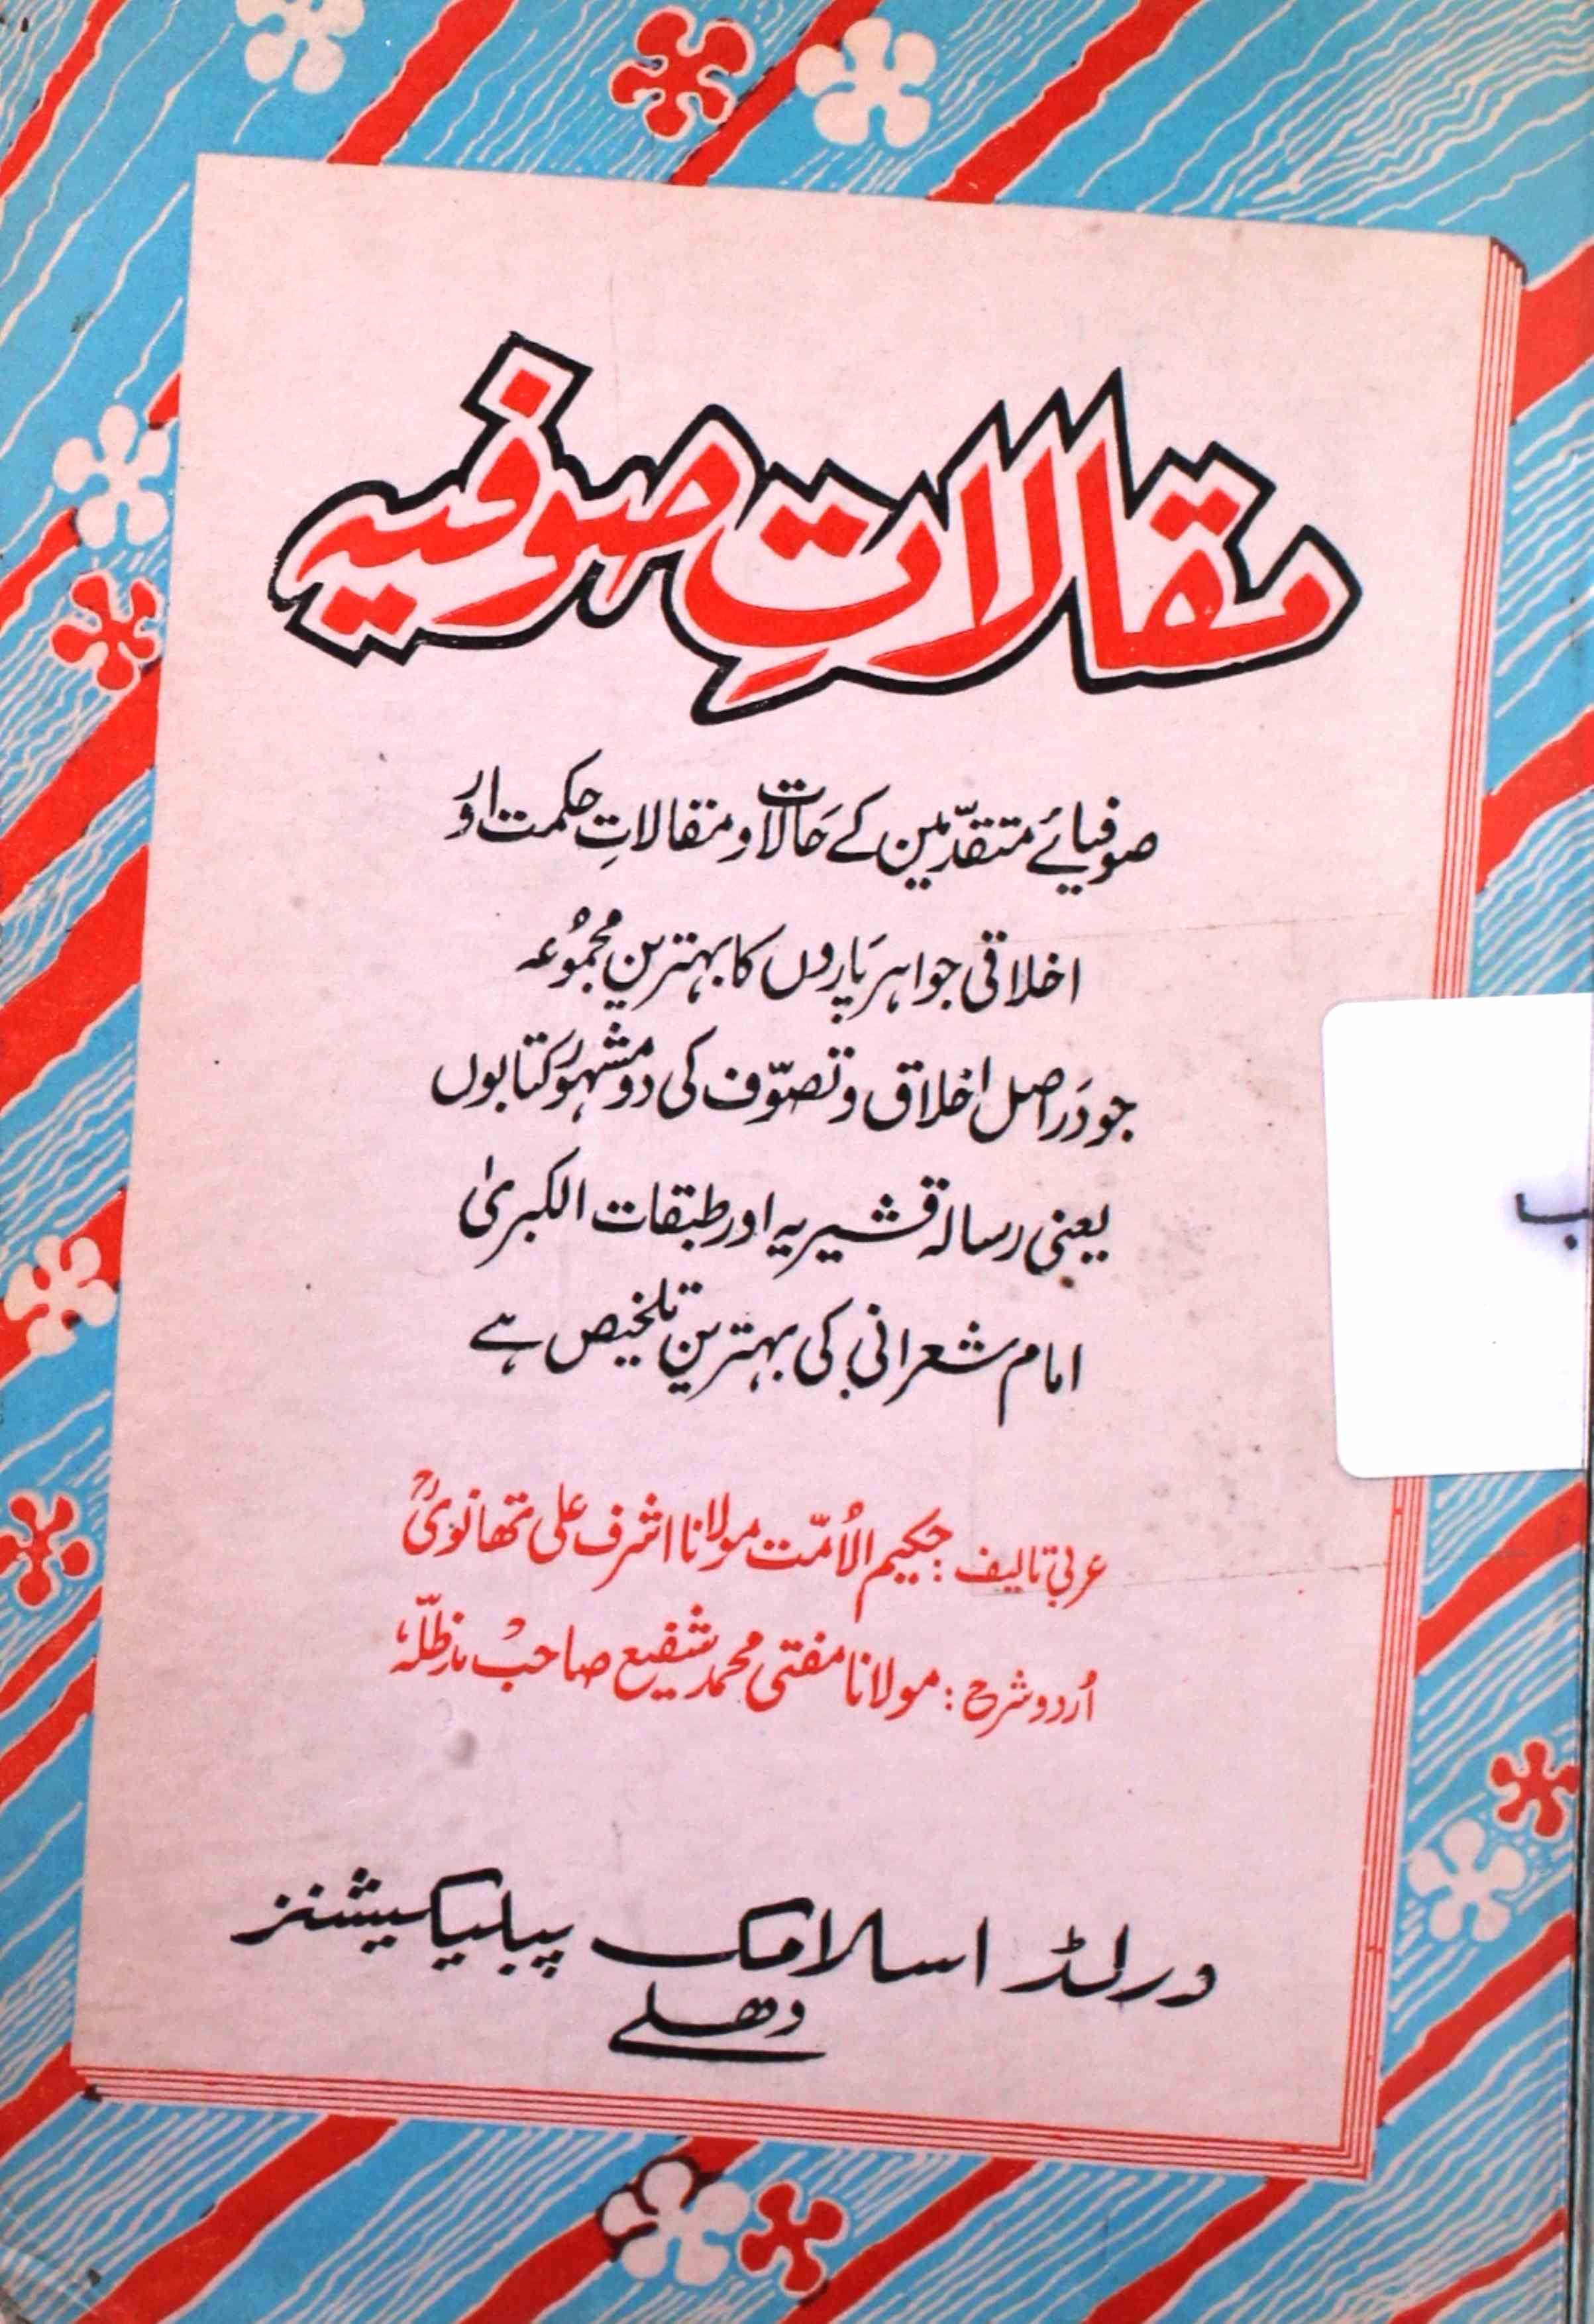 مقالاتِ صوفیہ
صوفیائے متقدّمین کے حَالات و مقالاتِ حکمت اور
اخلاقی جواہر پَاروں کا بہترین مجمُوعہ
جو دَر اصل اخلاق و تصوّف کی دو مشہور کتابوں
یعنی رسالہ قشیریہ اور طبقات الکبریٰ
امام شعرانی کی بہترین تلخیص ہے
عربی تالیف : حکیم الاُمّت مولانا اشرف علی تھانویؒ
اُردو شرح : مولانا مفتی محمد شفیع صاحب مدظلّہ
ورلڈ اسلامک پبلیکیشنز
دھلے
ب